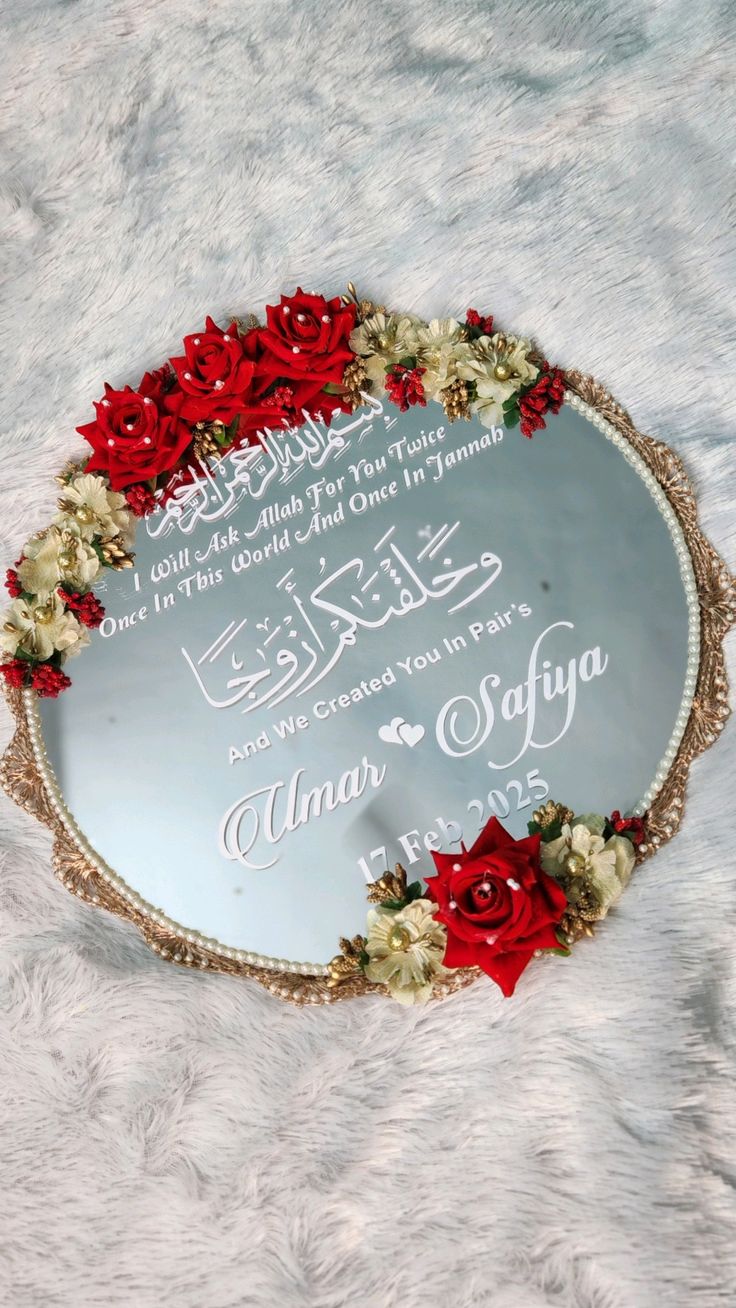 بسم الله الرحمن الرحيم
I Will Ask Allah For You Twice
Once In This World And Once In Jannah
وخلقنكم أزوجا
And We Created You In Pair's
Umar Safiya
17 Feb 2025